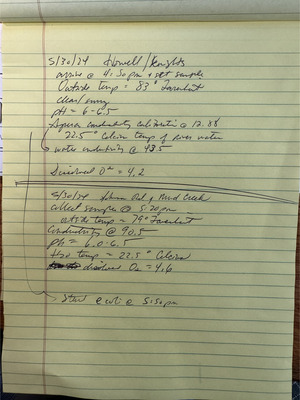 5/30/24 Howell/Knights
arrive @ 4:30pm + get sample
Outside temp = 83° Farenheit
clear/sunny
pH = 6-6.5
conductivity calibration @ 12.88
22.5° Celcius temp of river water
water conductivity @ 43.5
Dissolved O² = 4.2
5/30/24 Mud Creek
collect samples @ 5:20pm
outside temp = 79° Farenheit
Conductivity @ 90.5
pH = 6.0-6.5
H20 temp = 22.5° Celcius
dissolved O2 = 4.6
Start e coli @ 5:50pm